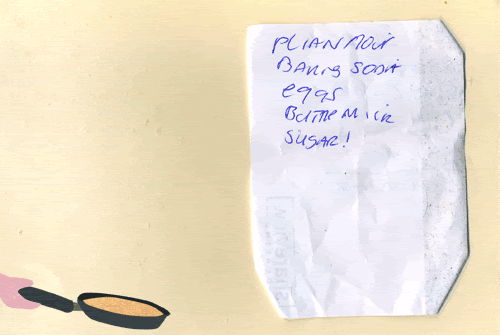 PLIAN FLOUR
BAKING SODA
eggs
BUTTERMILK
SUGAR!